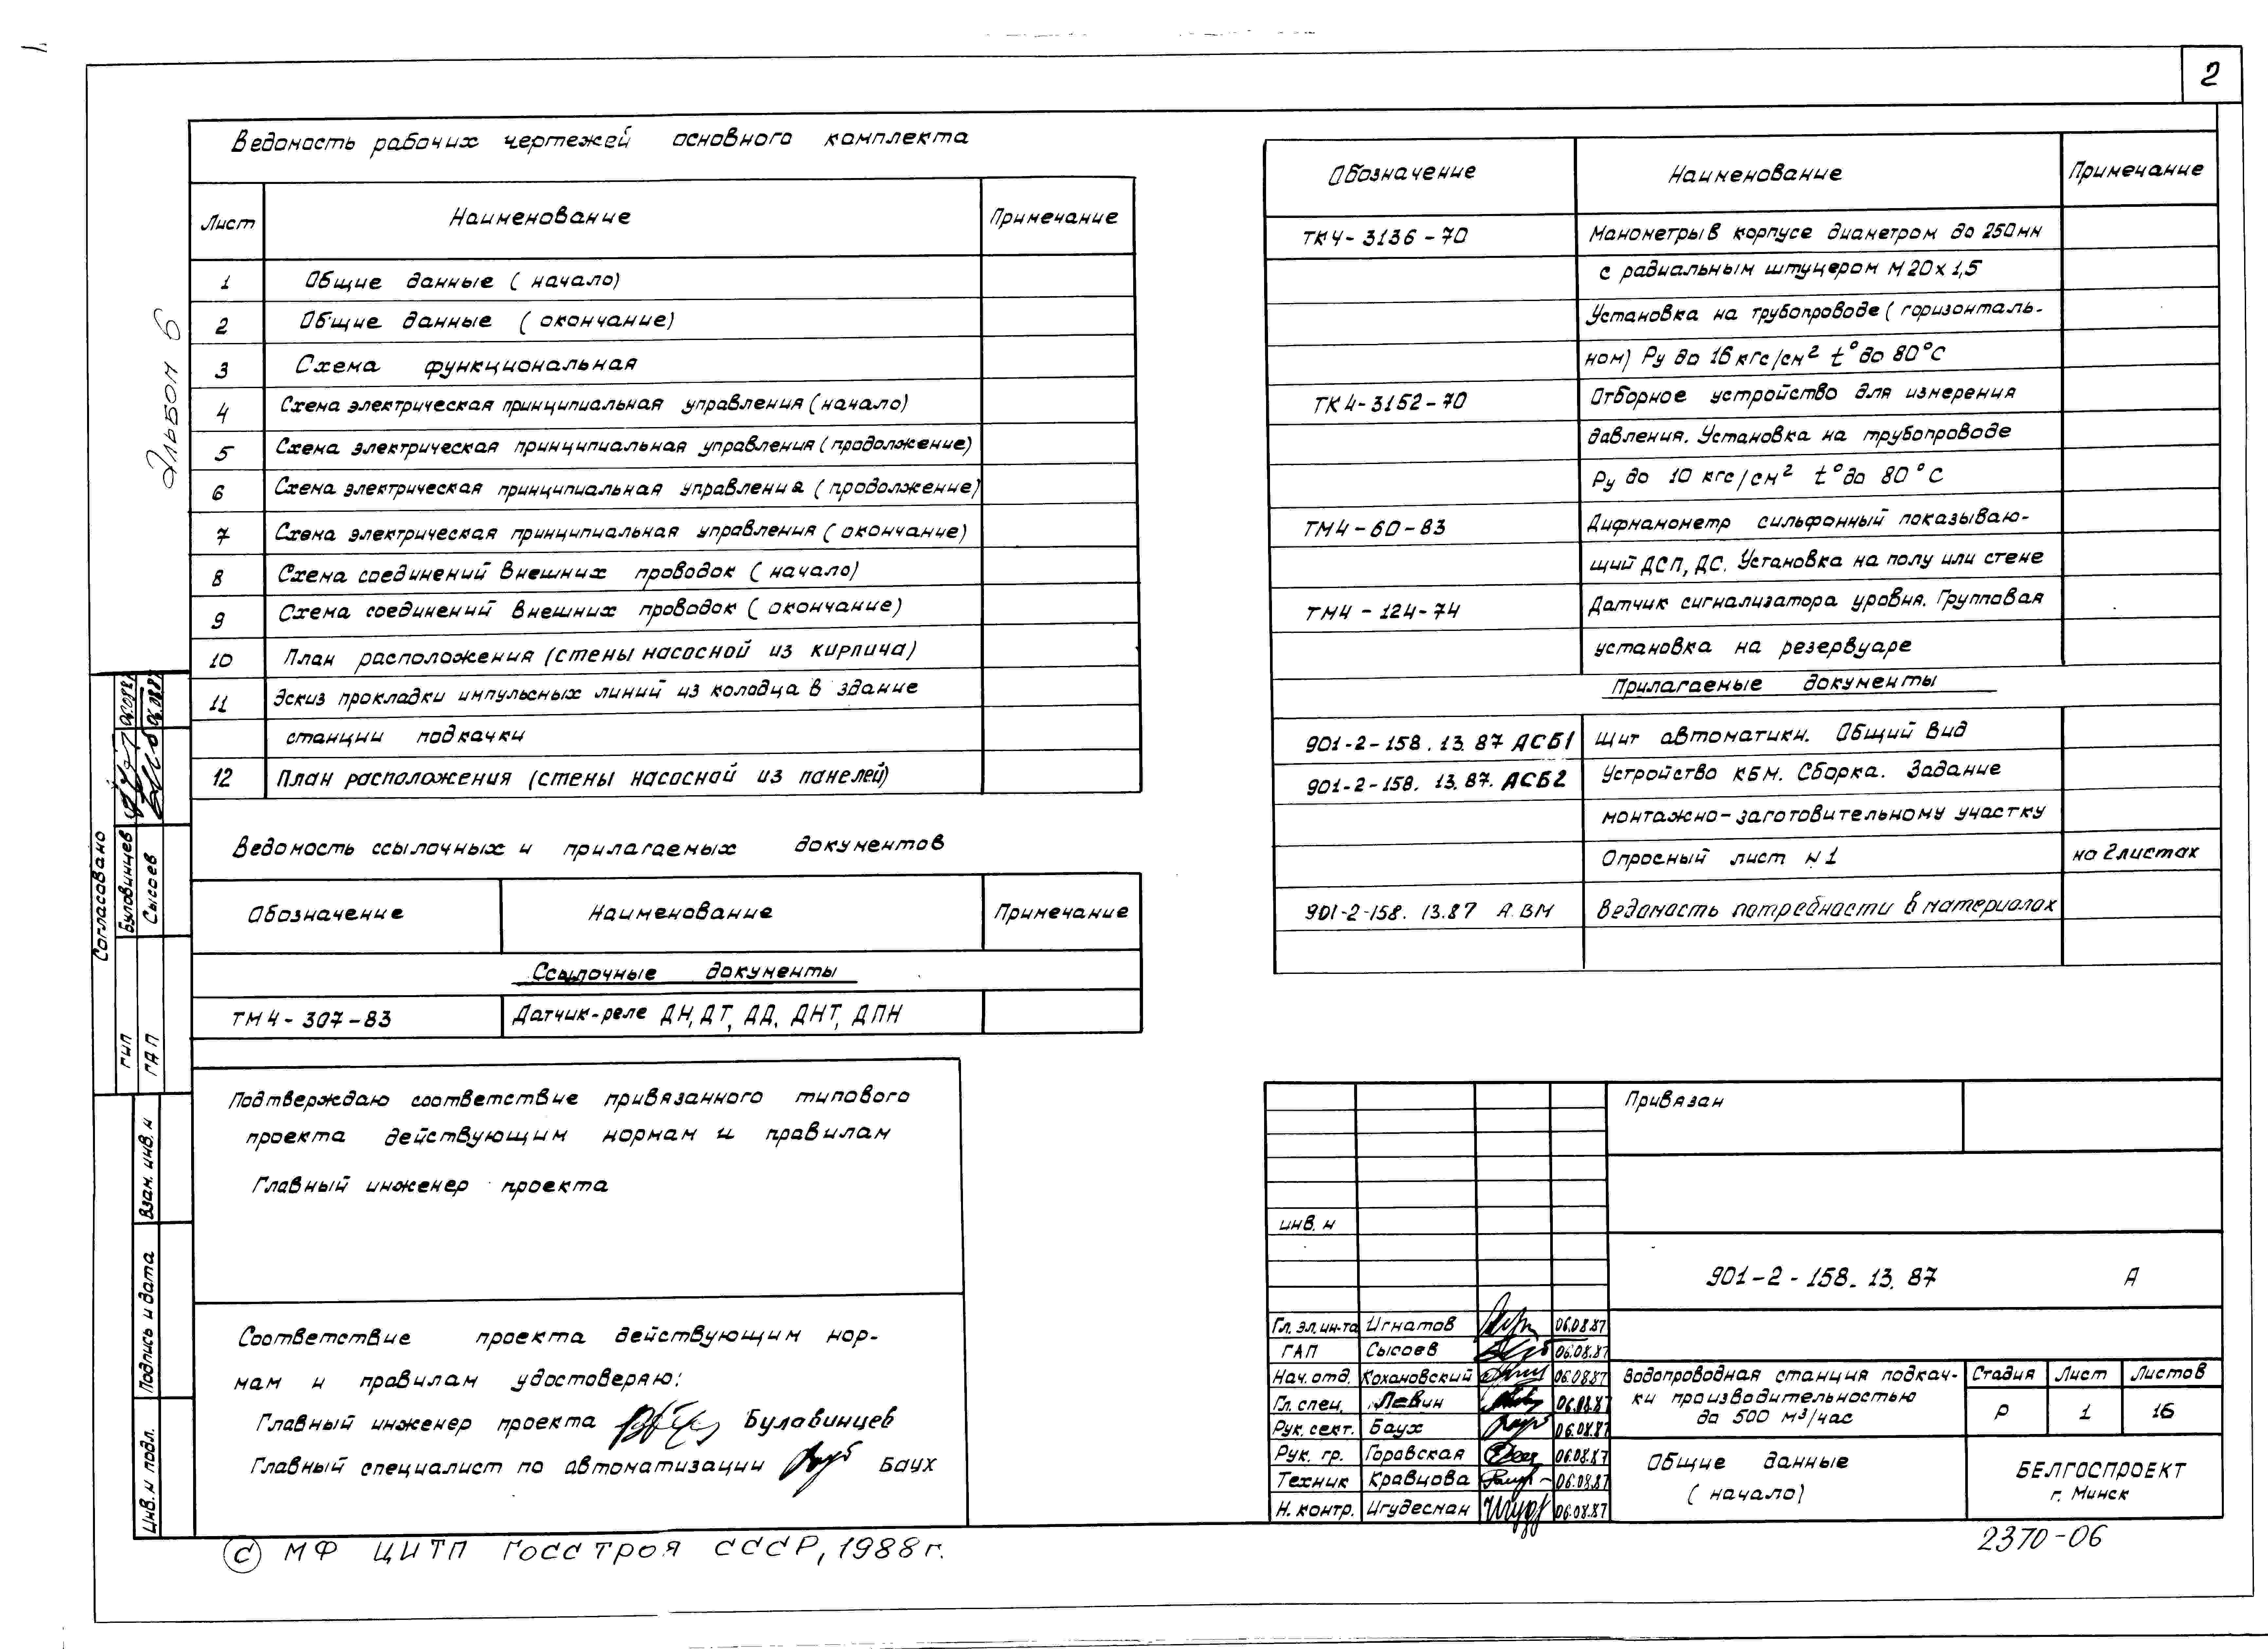 2
Альбом 6
Ведомость рабочих чертежей основного комплекта
Лист Наименование Примечание
1 Общие данные (начало)
2 Общие данные (окончание)
3 Схема функциональная
4 Схема электрическая принципиальная управления (начало)
5 Схема электрическая принципиальная управления (продолжение)
6 Схема электрическая принципиальная управления (продолжение)
7 Схема электрическая принципиальная управления (окончание)
8 Схема соединений внешних проводок (начало)
9 Схема соединений внешних проводок (окончание)
10 План расположения (стены насосной из кирпича)
11 Эскиз прокладки импульсных линий из колодца в здание
станции подкачки
12 План расположения (стены насосной из панелей)
Ведомость ссылочных и прилагаемых документов
Обозначение Наименование Примечание
Ссылочные документы
ТМ4-307-83 Датчик-реле ДН, ДТ, ДД, ДНТ, ДПН
Подтверждаю соответствие привязанного типового
проекта действующим нормам и правилам
Главный инженер проекта
Соответствие проекта действующим нор-
мам и правилам удостоверяю:
Главный инженер проекта Булавинцев
Главный специалист по автоматизации Баух
Обозначение Наименование Примечание
ТК4-3136-70 Манометры в корпусе диаметром до 250мм
с радиальным штуцером М20х1,5
Установка на трубопроводе (горизонталь-
ном) Ру до 16 кгс/см² t° до 80°С
ТК4-3152-70 Отборное устройство для измерения
давления. Установка на трубопроводе
Ру до 10 кгс/см² t° до 80°С
ТМ4-60-83 Дифманометр сильфонный показываю-
щий ДСП, ДС. Установка на полу или стене
ТМ4-124-74 Датчик сигнализатора уровня. Групповая
установка на резервуаре
Прилагаемые документы
901-2-158.13.87 АСБ1 Щит автоматики. Общий вид
901-2-158.13.87. АСБ2 Устройство КБМ. Сборка. Задание
монтажно-заготовительному участку
Опросный лист N1 на 2 листах
901-2-158.13.87 А.ВМ Ведомость потребности в материалах
Согласовано
ГИП Булавинцев 06.08.87
ГАП Сысоев 06.08.87
Взам. инв. N
Подпись и дата
Инв. N подл.
Привязан
инв. N
901-2-158.13.87 А
Гл. эл. ин-та Игнатов 06.08.87
ГАП Сысоев 06.08.87
Нач. отд. Кохановский 06.08.87
Гл. спец. Левин 06.08.87
Рук. сект. Баух 06.08.87
Рук. гр. Горовская 06.08.87
Техник Кравцова 06.08.87
Н. контр. Игудесман 06.08.87
Водопроводная станция подкач-
ки производительностью
до 500 м³/час
Стадия Лист Листов
Р 1 16
Общие данные
(начало)
БЕЛГОСПРОЕКТ
г. Минск
© МФ ЦИТП Госстроя СССР, 1988г.
2370-06